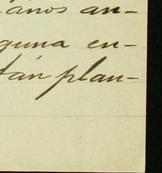 anos an-
guna en-
tán plan-